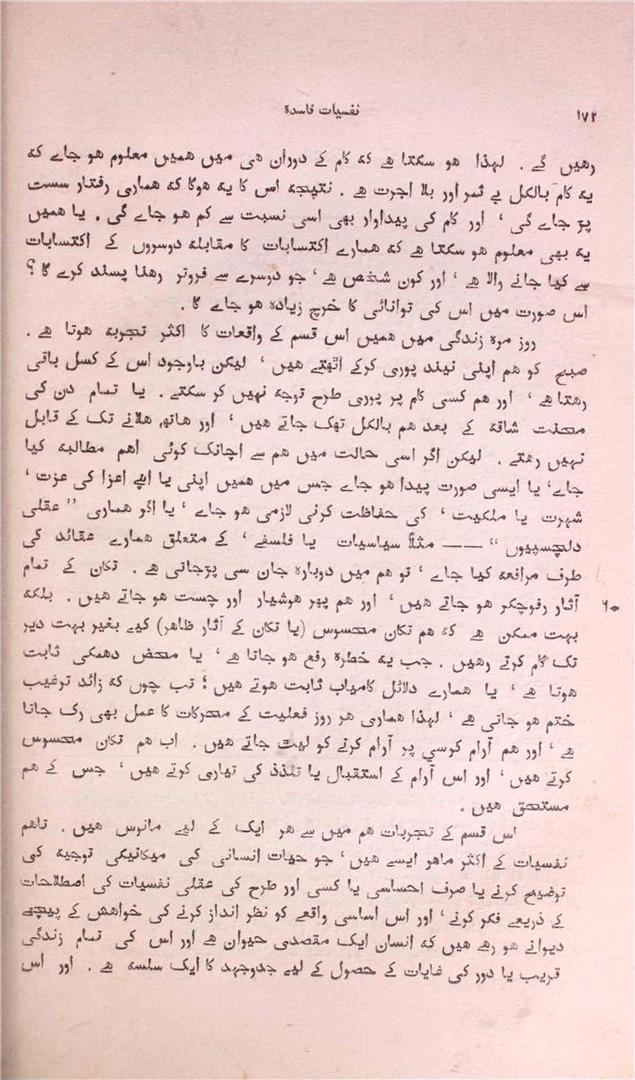 ۱۷۲
نفسیات فاسدہ
رھیں گے ۔ لہذا ھو سکتا ھے کہ کام کے دوران ھی میں ھمیں معلوم ھو جاے کہ
یہ کام بالکل بے ثمر اور بلا اجرت ھے ۔ نتیجہ اس کا یہ ھوگا کہ ھماری رفتار سست
پڑ جاے گی ' اور کام کی پیداوار بھی اسی نسبت سے کم ھو جاے گی ۔ یا ھمیں
یہ بھی معلوم ھو سکتا ھے کہ ھمارے اکتسابات کا مقابلہ دوسروں کے اکتسابات
سے کیا جانے والا ھے ' اور کون شخص ھے ' جو دوسرے سے فروتر رھنا پسند کرے گا ؟
اس صورت میں اس کی توانائی کا خرچ زیادہ ھو جاے گا ۔
روز مرہ زندگی میں ھمیں اس قسم کے واقعات کا اکثر تجربہ ھوتا ھے ۔
صبح کو ھم اپنی نیند پوری کرکے اٹھتے ھیں ' لیکن باوجود اس کے کسل باقی
رھتا ھے ' اور ھم کسی کام پر پوری طرح توجہ نہیں کو سکتے ۔ یا تمام دن کی
محنت شاقہ کے بعد ھم بالکل تھک جاتے ھیں ' اور ھاتھ ھلانے تک کے قابل
نہیں رھتے ۔ لیکن اگر اسی حالت میں ھم سے اچانک کوئی اھم مطالبہ کیا
جاے ' یا ایسی صورت پیدا ھو جاے جس میں ھمیں اپنی یا اپنے اعزا کی عزت '
شہرت یا ملکیت ' کی حفاظت کرنی لازمی ھو جاے ' یا اگو ھماری ” عقلی
دلچسپیوں “ —— مثلاً سیاسیات یا فلسفے ' کے متعلق ھمارے عقائد کی
طرف مرافعہ کیا جاے ' تو ھم میں دوبارہ جان سی پڑجاتی ھے ۔ تکان کے تمام
آثار رفوچکر ھو جاتے ھیں ' اور ھم پھر ھوشیار اور چست ھو جاتے ھیں ۔ بلکہ
بہت ممکن ھے کہ ھم تکان محسوس (یا تکان کے آثار ظاھر) کیے بغیر بہت دیر
تک کام کرتے رھیں ۔ جب یہ خطرہ رفع ھو جاتا ھے ' یا محض دھمکی ثابت
ھوتا ھے ' یا ھمارے دلائل کامیاب ثابت ھوتے ھیں ؛ تب چوں کہ زائد ترغیب
ختم ھو جاتی ھے ' لہذا ھماری ھر روز فعلیت کے محرکات کا عمل بھی رک جاتا
ھے ' اور ھم آرام کرسی پر آرام کرنے کو لیٹ جاتے ھیں ۔ اب ھم تکان محسوس
کرتے ھیں ' اور اس آرام کے استقبال یا تلذذ کی تیاری کرتے ھیں ' جس کے ھم
مستحق ھیں ۔
اس قسم کے تجربات ھم میں سے ھر ایک کے لیے مانوس ھیں ۔ تاھم
نفسیات کے اکثر ماھر ایسے ھیں ' جو حیات انسانی کی میکانیکی توجیہ کی
توضیح کرنے یا صرف احساسی یا کسی اور طرح کی عقلی نفسیات کی اصطلاحات
کے ذریعے فکر کرنے ' اور اس اساسی واقعے کو نظر انداز کرنے کی خواھش کے پیچھے
دیوانے ھو رھے ھیں کہ انسان ایک مقصدی حیوان ھے اور اس کی تمام زندگی
قریب یا دور کی غایات کے حصول کے لیے جدوجہد کا ایک سلسہ ھے ۔ اور اس